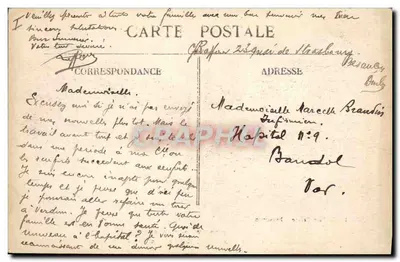 Veuillez présenter à toute votre famille avec mon bon souvenir mes
sincères salutations.
Bon souvenir.
Votre tout dévoué.
CARTE POSTALE
23 quai de Strasbourg
Besançon
Doubs
CORRESPONDANCE
ADRESSE
Mademoiselle.
Excusez moi si je n'ai pas envoyé
de nouvelles plus tôt. Mais le
travail avant tout et
dans une période à ma Cie ou
les renforts succèdent aux renforts.
Je suis encore inapte pour quelque
temps et je pense que d'ici peu
je pourrai aller refaire un tour
à Verdun. Je pense que toute votre
famille est en bonne santé. Quoi de
nouveau à l'hôpital? Je vous serais
reconnaissant de me donner quelques nouvelles.
Mademoiselle Marcelle
Infirmière
Hôpital N°9.
Bandol
Var.